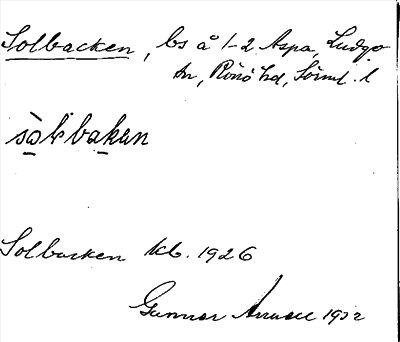 Solbacken, bs å 1-2 Aspa, Ludgo
sn, Rönö hd, Sörml. l
Solbacken kb. 1926
Gunnar 1932